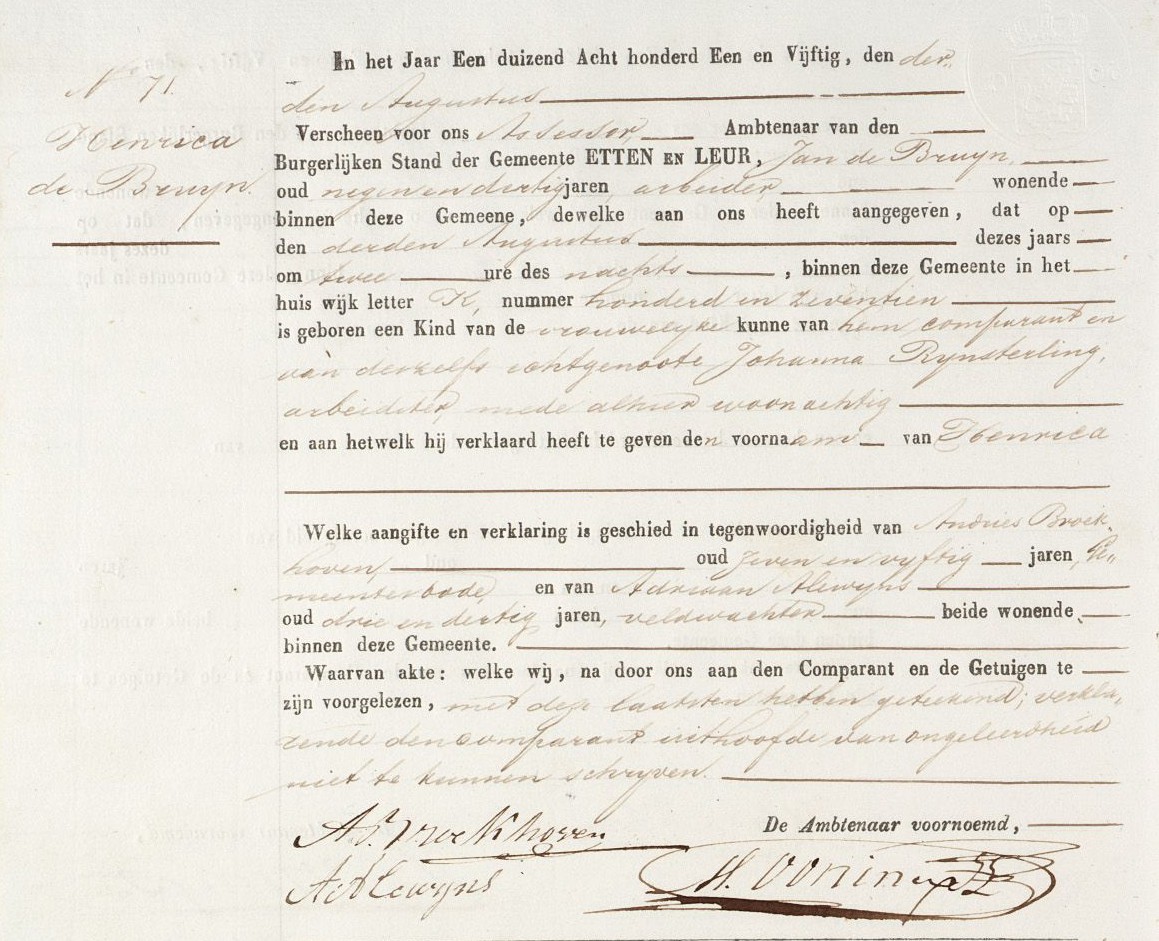 N° 71.
Henrica
de Bruyn.
In het Jaar Een duizend Acht honderd Een en Vijftig, den der„
den Augustus
Verscheen voor ons Assessor, Ambtenaar van den
Burgerlijken Stand der Gemeente ETTEN EN LEUR, Jan de Bruyn,
oud negen en dertig jaren, arbeider, wonende
binnen deze Gemeene, dewelke aan ons heeft aangegeven, dat op
den derden Augustus dezes jaars
om twee ure des nachts, binnen deze Gemeente in het
huis wijk letter K, nummer honderd en zeventien
is geboren een Kind van de vrouwelyke kunne van hem comparant en
van deszelfs echtgenoote Johanna Rynsterling,
arbeidster, mede alhier woonachtig
en aan hetwelk hij verklaard heeft te geven den voornaam van Henrica
Welke aangifte en verklaring is geschied in tegenwoordigheid van Andries Broek„
hoven, oud zeven en vyftig jaren, Ge„
meentebode, en van Adriaan Alewyns
oud drie en dertig jaren, veldwachter beide wonende
binnen deze Gemeente.
Waarvan akte: welke wij, na door ons aan den Comparant en de Getuigen te
zijn voorgelezen, met deze laatsten hebben geteekend; verkla„
rende den comparant uithoofde van ongeleerdheid
niet te kunnen schryven.
De Ambtenaar voornoemd,
A. Broekhoven
A Alewyns